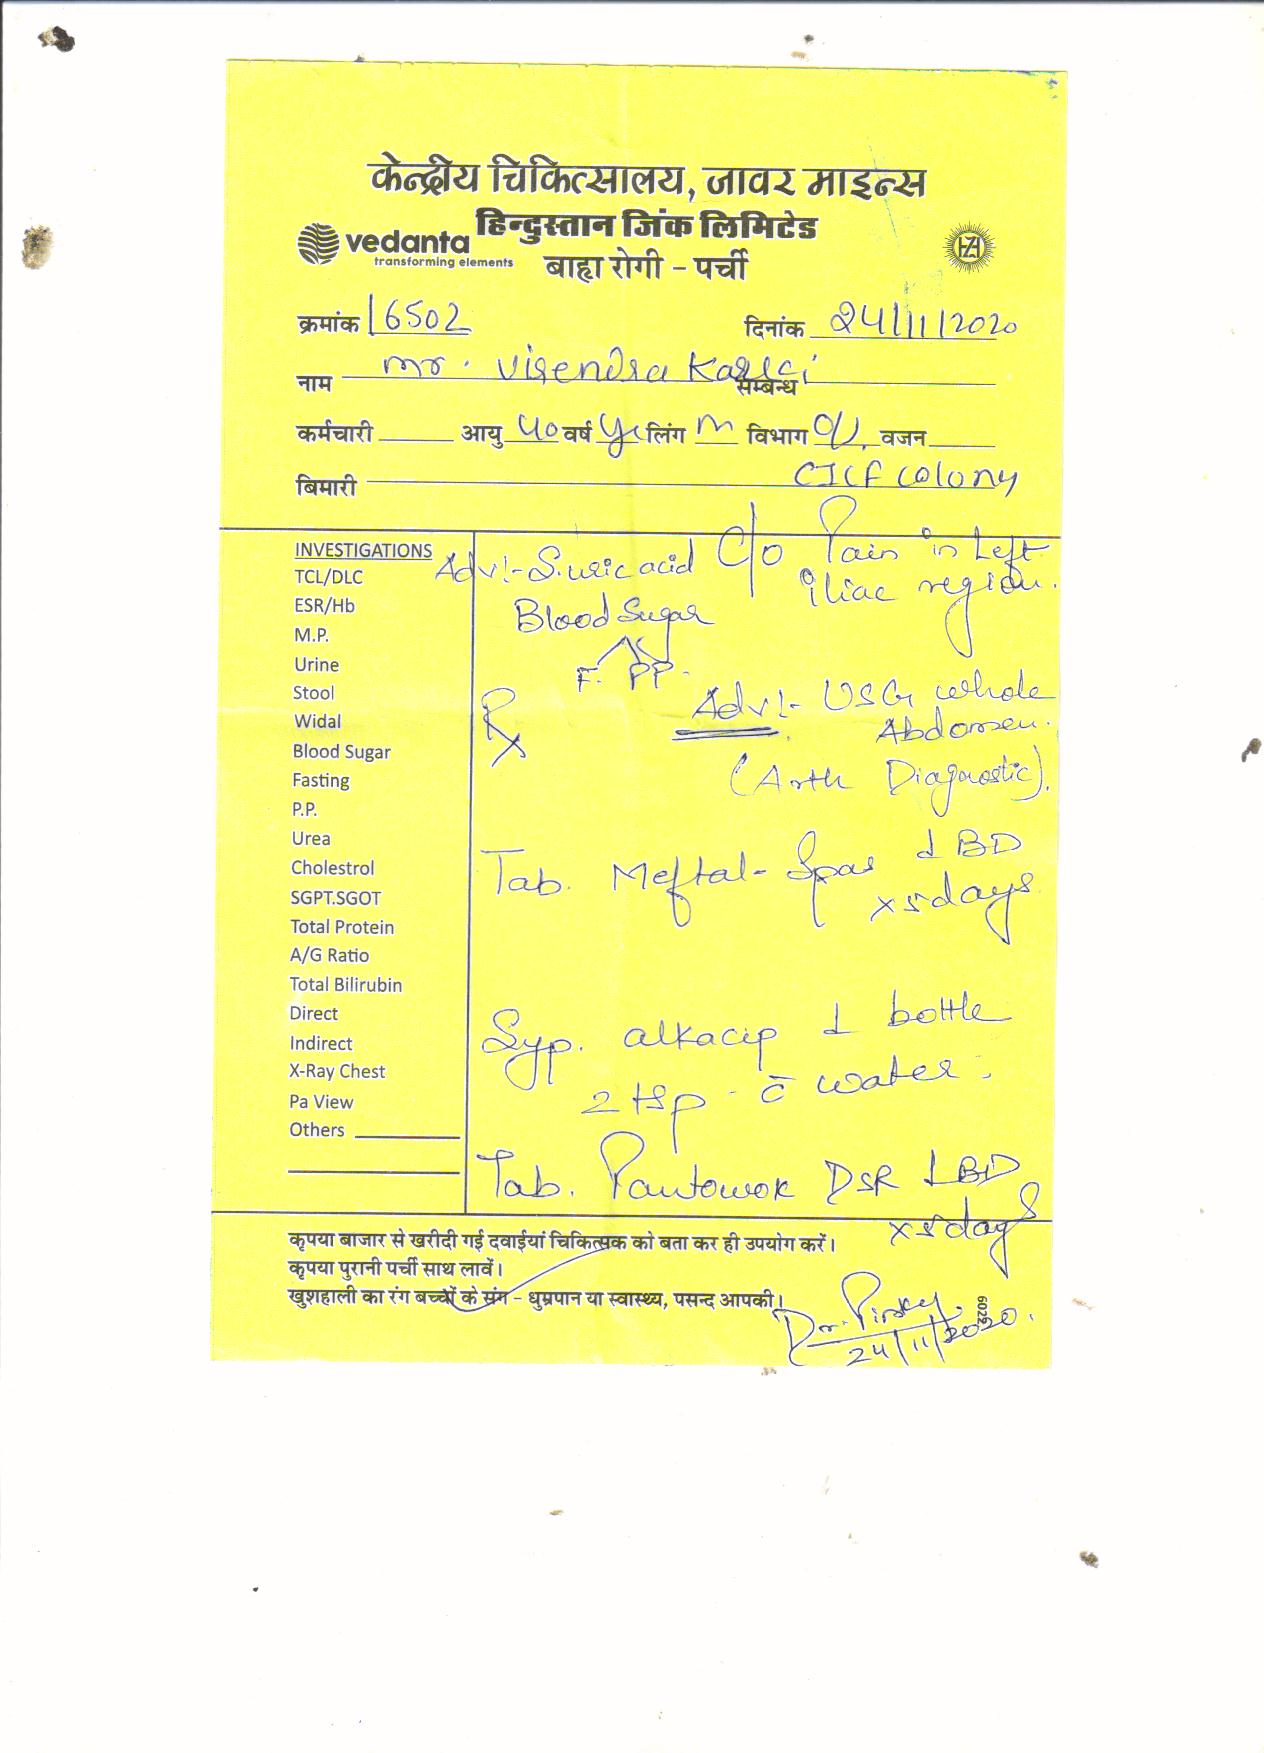 केन्द्रीय चिकित्सालय, जावर माइन्स
हिन्दुस्तान जिंक लिमिटेड
vedanta
transforming elements
बाह्य रोगी - पर्ची
क्रमांक 16502 दिनांक 24/11/2020
नाम mr. Virendra सम्बन्ध
कर्मचारी आयु 40 वर्ष लिंग M विभाग वजन
बिमारी colony
INVESTIGATIONS
TCL/DLC
ESR/Hb
M.P.
Urine
Stool
Widal
Blood Sugar
Fasting
P.P.
Urea
Cholestrol
SGPT.SGOT
Total Protein
A/G Ratio
Total Bilirubin
Direct
Indirect
X-Ray Chest
Pa View
Others
C/o Pain in Left
iliac region.
Adv:- S. uric acid
Blood Sugar
F. PP.
Rx
Adv:- USG whole
Abdomen.
(Arth Diagnostic).
Tab. Meftal-Spas 1 BD
x 5 days
Syp. alkacip 1 bottle
2 tsp - c̄ water.
Tab. DSR 1 BD
x 5 days
कृपया बाजार से खरीदी गई दवाईयां चिकित्सक को बता कर ही उपयोग करें।
कृपया पुरानी पर्ची साथ लावें।
खुशहाली का रंग बच्चों के संग - धुम्रपान या स्वास्थ्य, पसन्द आपकी।
Dr.
24/11/2020.
6029